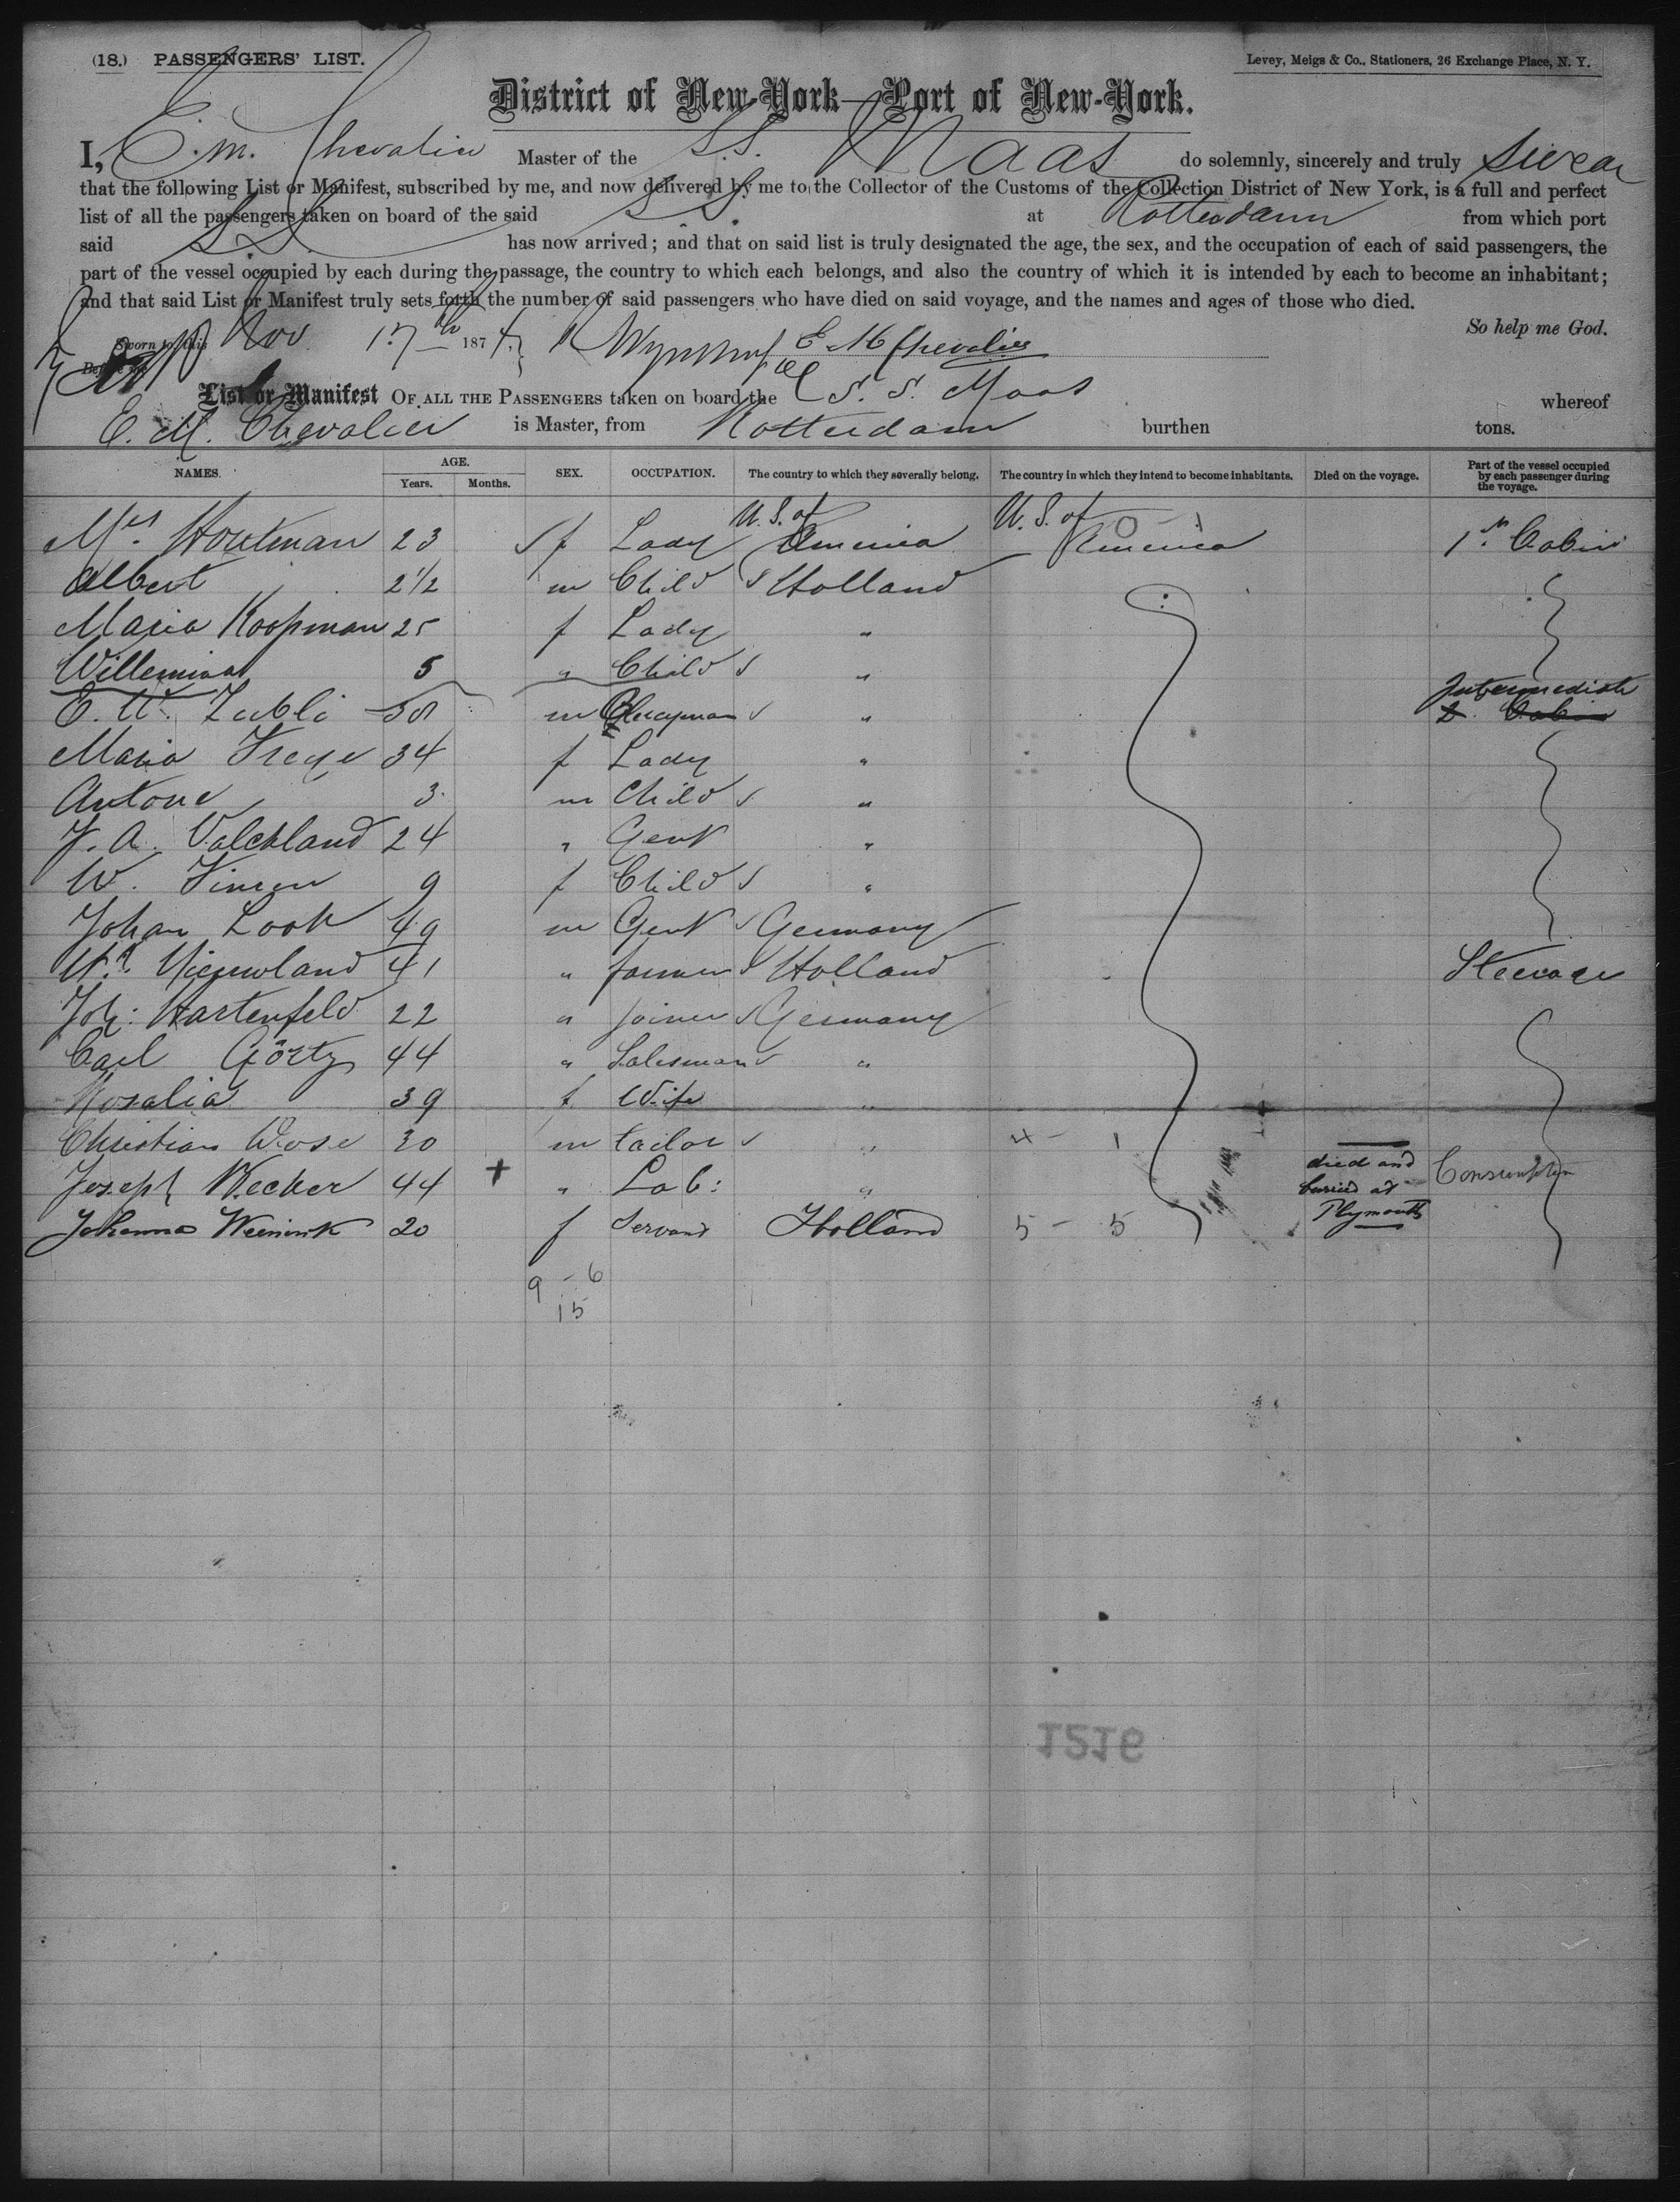 (18.) PASSENGERS' LIST.
Levey, Meigs & Co., Stationers, 26 Exchange Place, N. Y.
District of New-York—Port of New-York.
I, E. M. Chevalier Master of the S.S. Maas do solemnly, sincerely and truly swear
that the following List or Manifest, subscribed by me, and now delivered by me to the Collector of the Customs of the Collection District of New York, is a full and perfect
list of all the passengers taken on board of the said S.S. at Rotterdam from which port
said S.S. has now arrived; and that on said list is truly designated the age, the sex, and the occupation of each of said passengers, the
part of the vessel occupied by each during the passage, the country to which each belongs, and also the country of which it is intended by each to become an inhabitant;
and that said List or Manifest truly sets forth the number of said passengers who have died on said voyage, and the names and ages of those who died.
So help me God.
Sworn to this Nov 17th 1874 E M Chevalier
Before me
List or Manifest OF ALL THE PASSENGERS taken on board the S. S. Maas whereof
E. M. Chevalier is Master, from Rotterdam burthen tons.
NAMES. AGE. Years. Months. SEX. OCCUPATION. The country to which they severally belong. The country in which they intend to become inhabitants. Died on the voyage. Part of the vessel occupied by each passenger during the voyage.
Mrs. Houtman 23 f Lady U. S. of America U. S. of America 0 - 1 1st Cabin
Albert 2 1/2 m Child Holland
Maria Koopman 25 f Lady "
Willemina 5 " Child "
E. W. Zubli 38 m Clergyman " Intermediate 2. Cabin
Maria Frege 34 f Lady "
Antone 3 m Child "
J. A. Valckland 24 " Gent "
W. Vinsen 9 f Child "
Johan Look 49 m Gent Germany
Nieuwland 41 " farmer Holland Steerage
Joh: Hartenfeld 22 " joiner Germany
Carl Görtz 44 " Salesman "
Rosalia 39 f Wife "
Christian Wose 30 m tailor " 4 - 1
Joseph Wecker 44 + " Lab: " died and buried at Plymouth Consumption
Johanna Weenink 20 f Servant Holland 5 - 5
9 - 6
15
1519